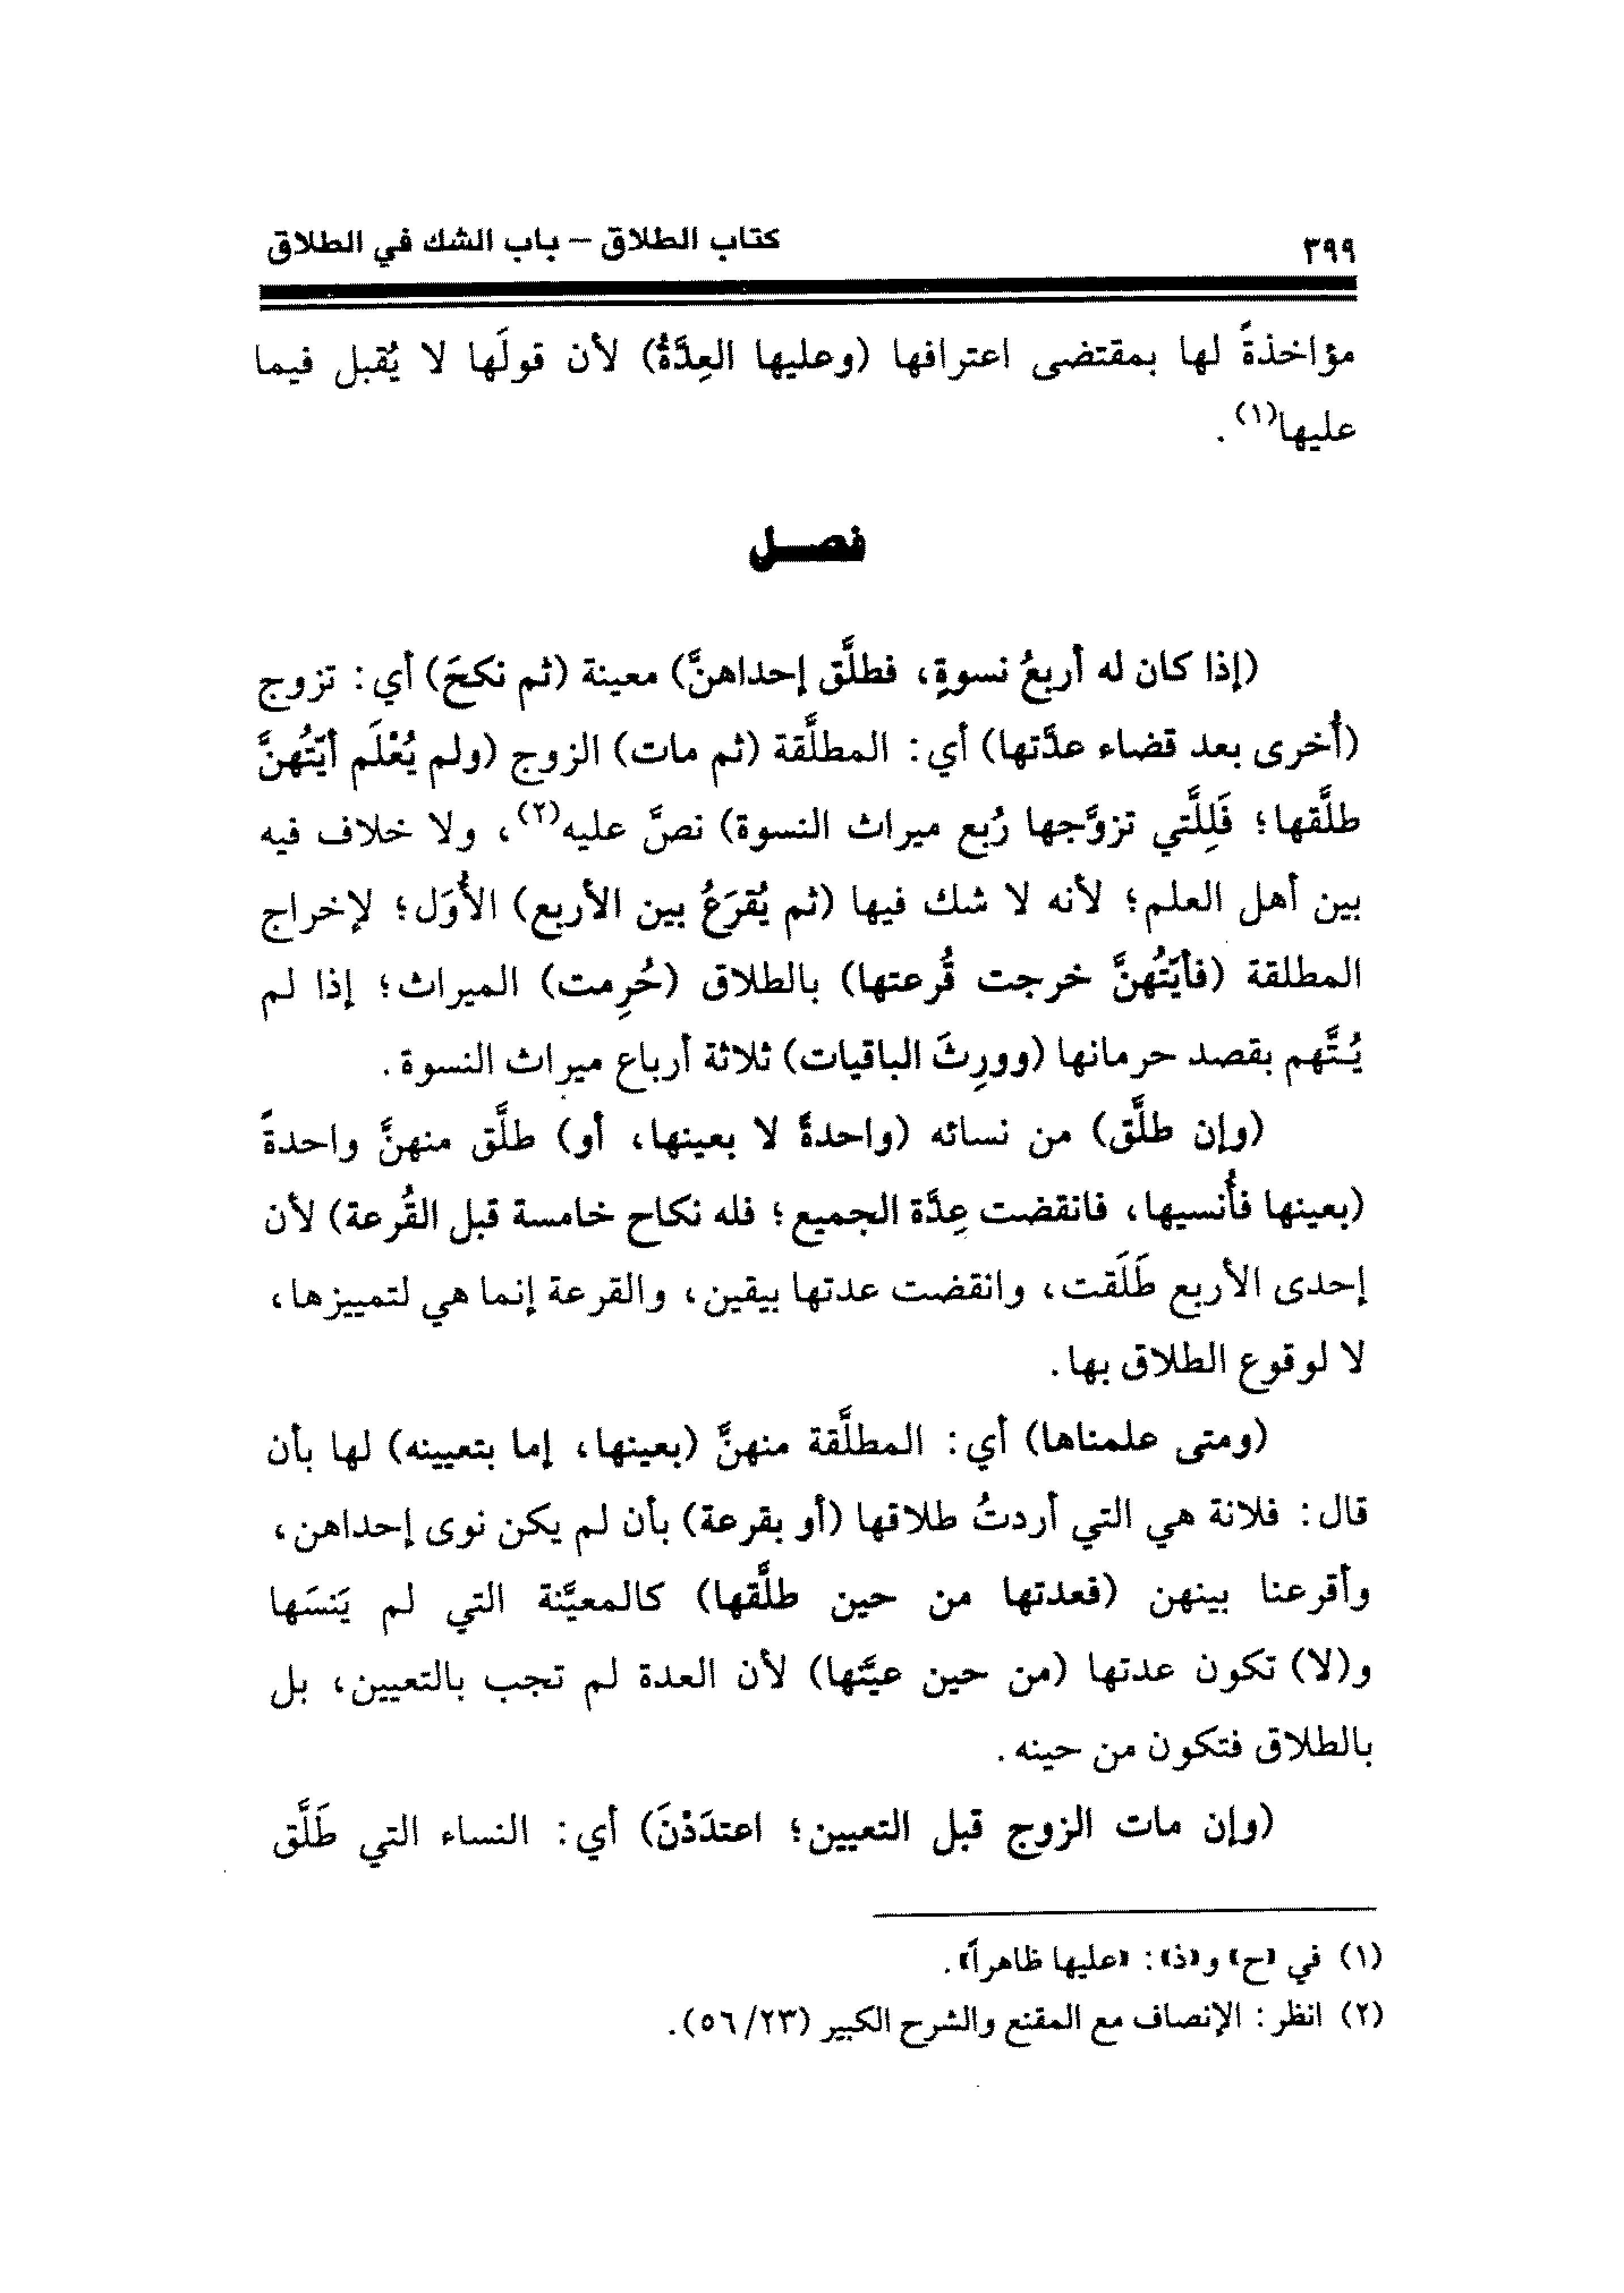 ٣٩٩ كتاب الطلاق – باب الشك في الطلاق
مؤاخذةً لها بمقتضى اعترافها (وعليها العِدَّةُ) لأن قولَها لا يُقبل فيما
عليها(١).
فصـــل
(إذا كان له أربعُ نسوةٍ، فطلَّق إحداهنَّ) معينة (ثم نكحَ) أي: تزوج
(أُخرى بعد قضاء عدَّتها) أي: المطلَّقة (ثم مات) الزوج (ولم يُعْلَم أيّتُهنَّ
طلَّقها؛ فَلِلَّتي تزوَّجها رُبع ميراث النسوة) نصَّ عليه(٢)، ولا خلاف فيه
بين أهل العلم؛ لأنه لا شك فيها (ثم يُقرَعُ بين الأربع) الأُوَل؛ لإخراج
المطلقة (فأيّتُهنَّ خرجت قُرعتها) بالطلاق (حُرِمت) الميراث؛ إذا لم
يُـتَّهم بقصد حرمانها (وورِثَ الباقيات) ثلاثة أرباع ميراث النسوة.
(وإن طلَّق) من نسائه (واحدةً لا بعينها، أو) طلَّق منهنَّ واحدةً
(بعينها فأُنسيها، فانقضت عِدَّة الجميع؛ فله نكاح خامسة قبل القُرعة) لأن
إحدى الأربع طَلَقت، وانقضت عدتها بيقين، والقرعة إنما هي لتمييزها،
لا لوقوع الطلاق بها.
(ومتى علمناها) أي: المطلَّقة منهنَّ (بعينها، إما بتعيينه) لها بأن
قال: فلانة هي التي أردتُ طلاقها (أو بقرعة) بأن لم يكن نوى إحداهن،
وأقرعنا بينهن (فعدتها من حين طلَّقها) كالمعيَّنة التي لم يَنسَها
و(لا) تكون عدتها (من حين عيَّنها) لأن العدة لم تجب بالتعيين، بل
بالطلاق فتكون من حينه.
(وإن مات الزوج قبل التعيين؛ اعتدَدْنَ) أي: النساء التي طَلَّق
(١) في «ح» و«ذ»: «عليها ظاهراً».
(٢) انظر: الإنصاف مع المقنع والشرح الكبير (٢٣/ ٥٦).